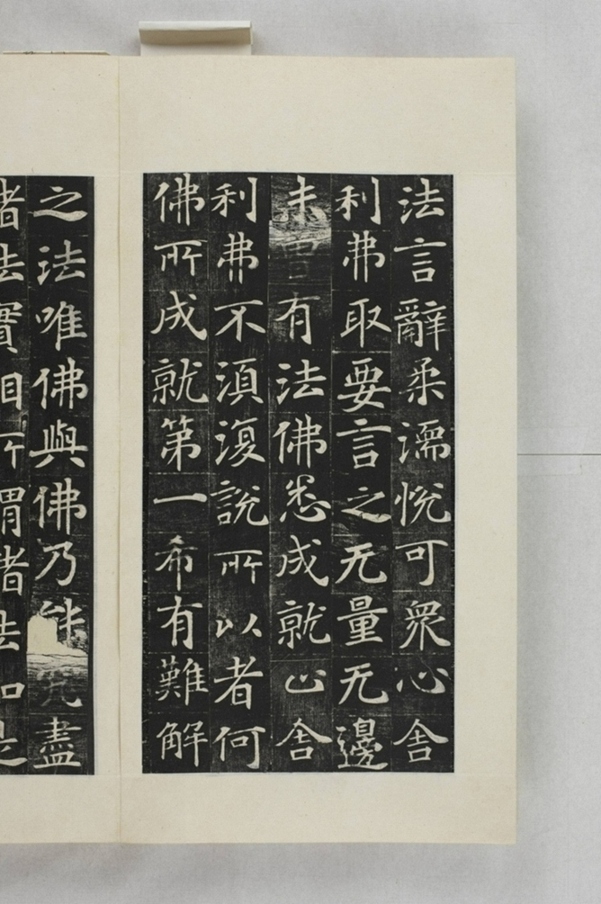 法言辭柔濡悅可衆心舍
利弗取要言之无量无邊
未曾有法佛悉成就止舍
利弗不湏復說所以者何
佛所成就第一希有難解
之法唯佛與佛乃能究盡
諸法實相所謂諸法如是